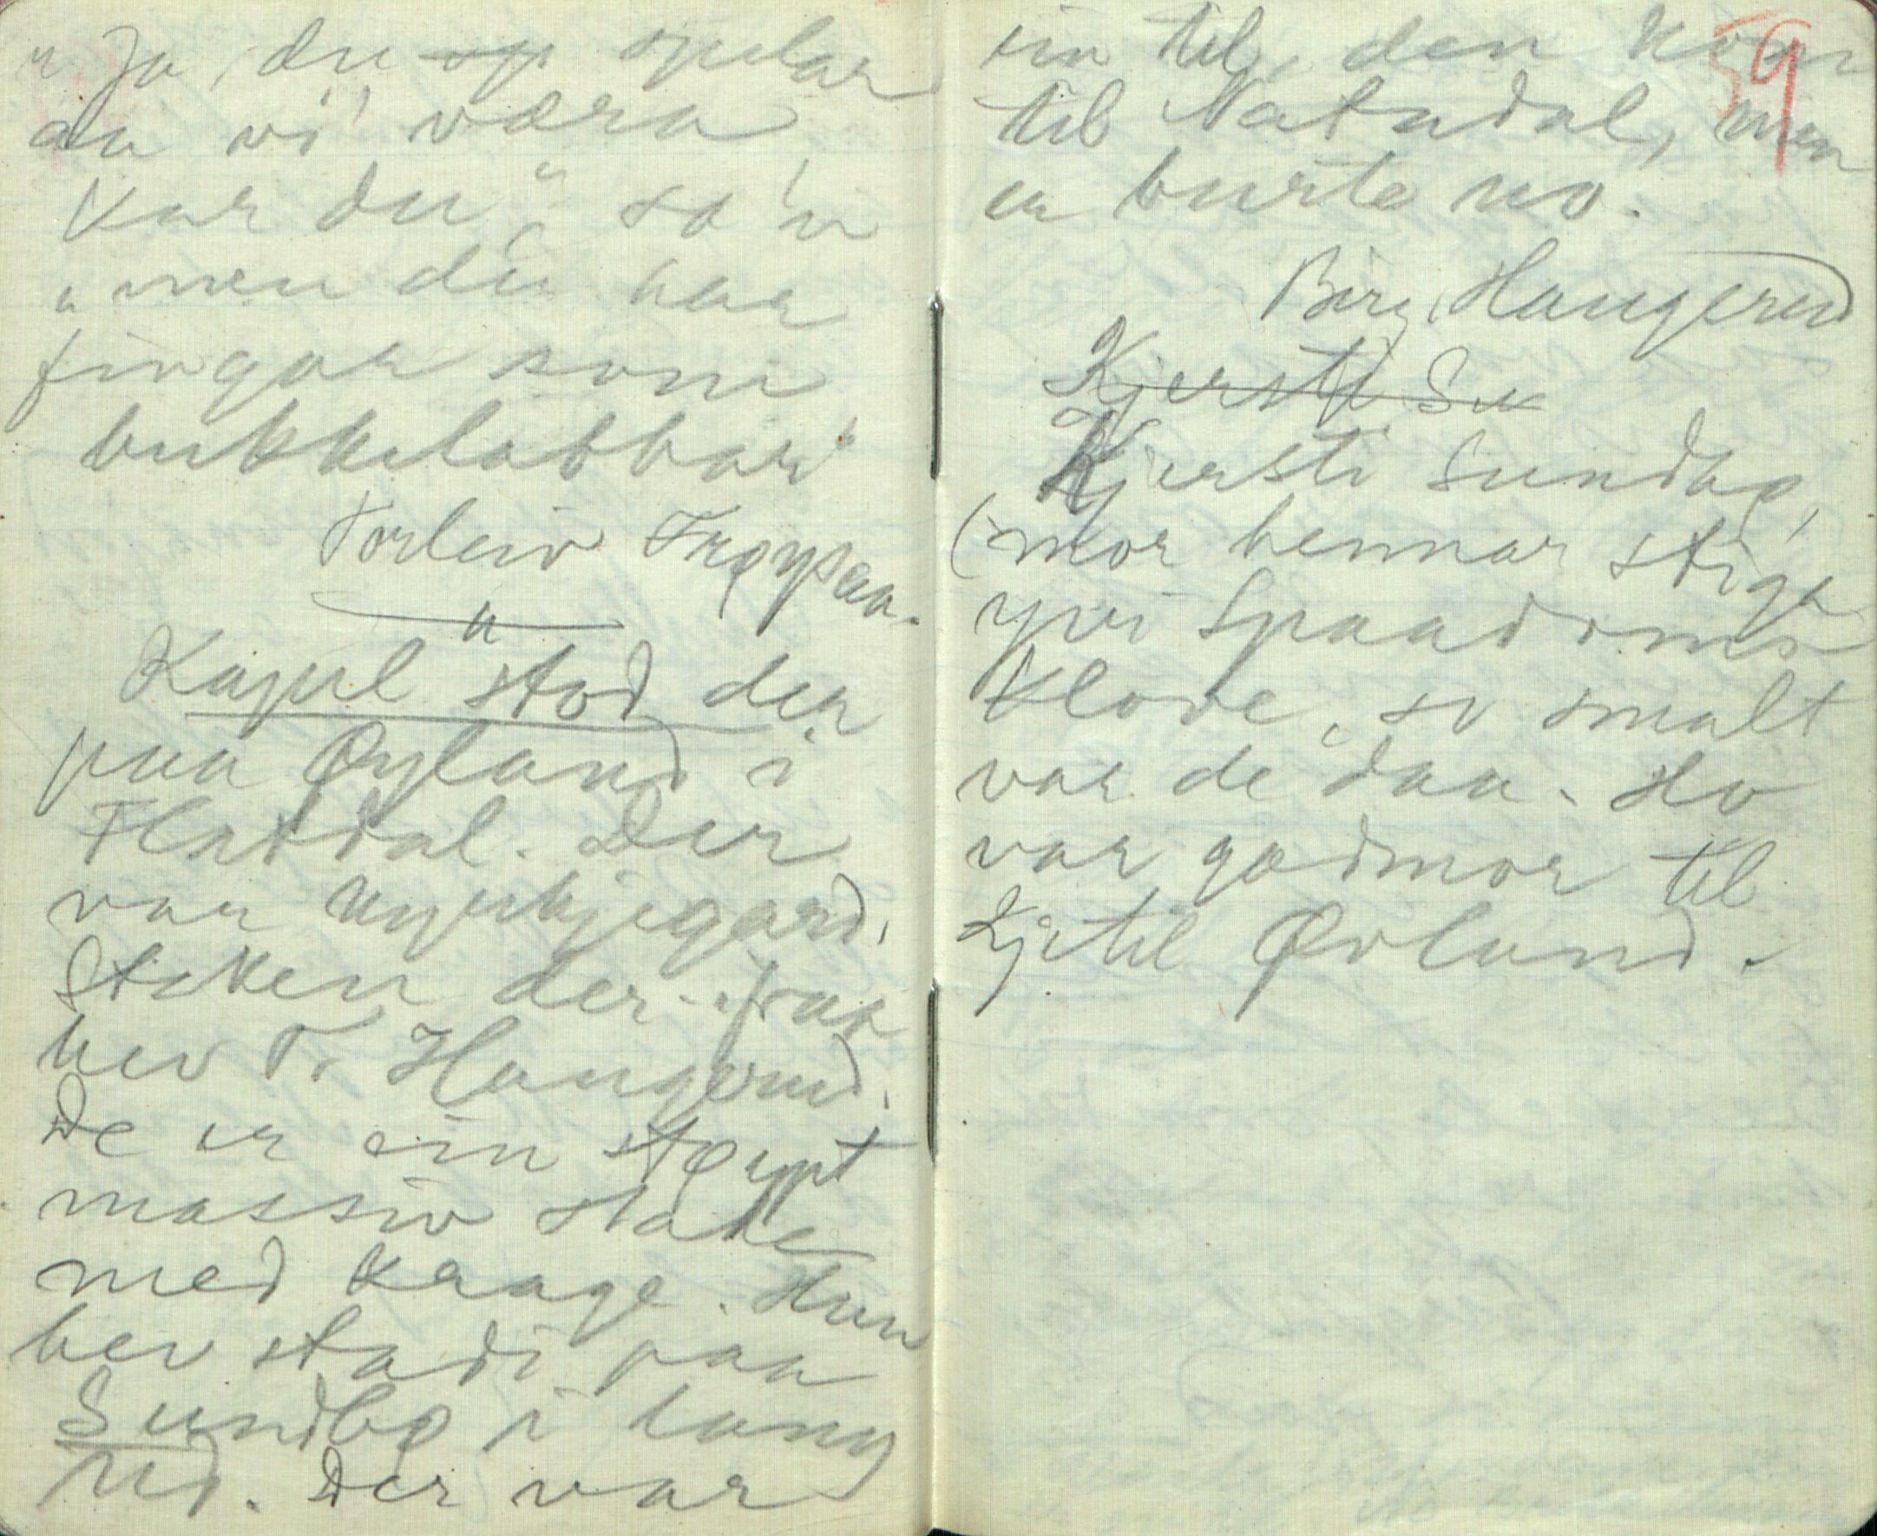 "Ja, du sp spelar
aa vi' væra,
Kar du" sa'n
"men du har
fingar som
bukkelabbar"
Torleiv Frøysaa.
"
Kapel stod der
paa Øyland i
Flatdal. Der
var kyrkjegard.
Staken der-fraa
hev T. Haugerud.
De er ein støypt
massiv stake
med Krage. Hun
hev stadi paa
Sundbø i lang
tid. Der var
ein til, den kom
til Natadal, men
er burte no.
59
Birg. Haugerud
Kjersti Su
Kjersti Sundbø,
(mor hennar stige
yvi Spaadoms
Klove, so smalt
var de' daa. Ho
var godmor til
Kjetil Øvlund.